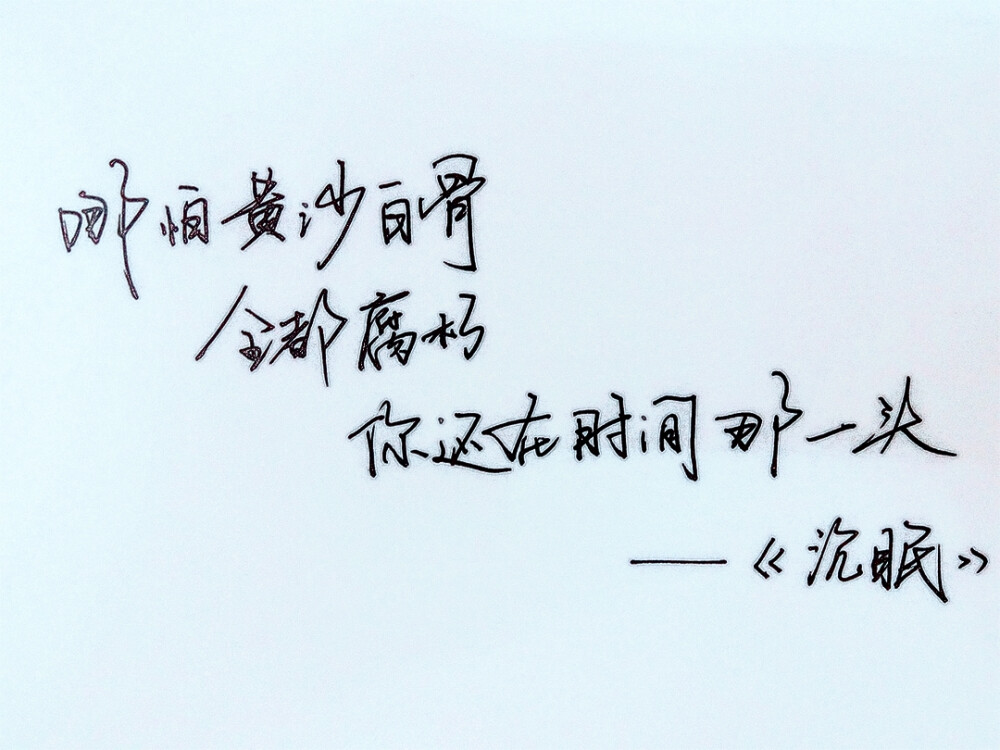 哪怕黄沙白骨
全都腐朽
你还在时间那一头
——《沉眠》